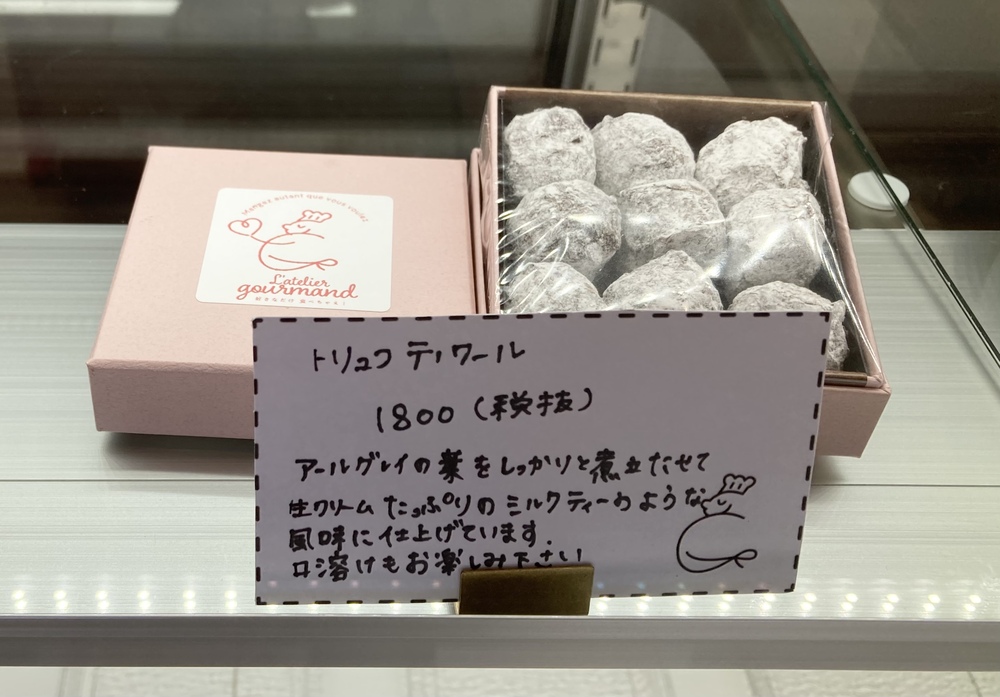 Mangez autant que vous voulez
L'atelier
gourmand
好きなだけ 食べちゃえ!
トリュフ テノワール
1800(税抜)
アールグレイの葉をしっかりと煮立たせて
生クリームたっぷりのミルクティーのような
風味に仕上げています.
口溶けもお楽しみ下さい